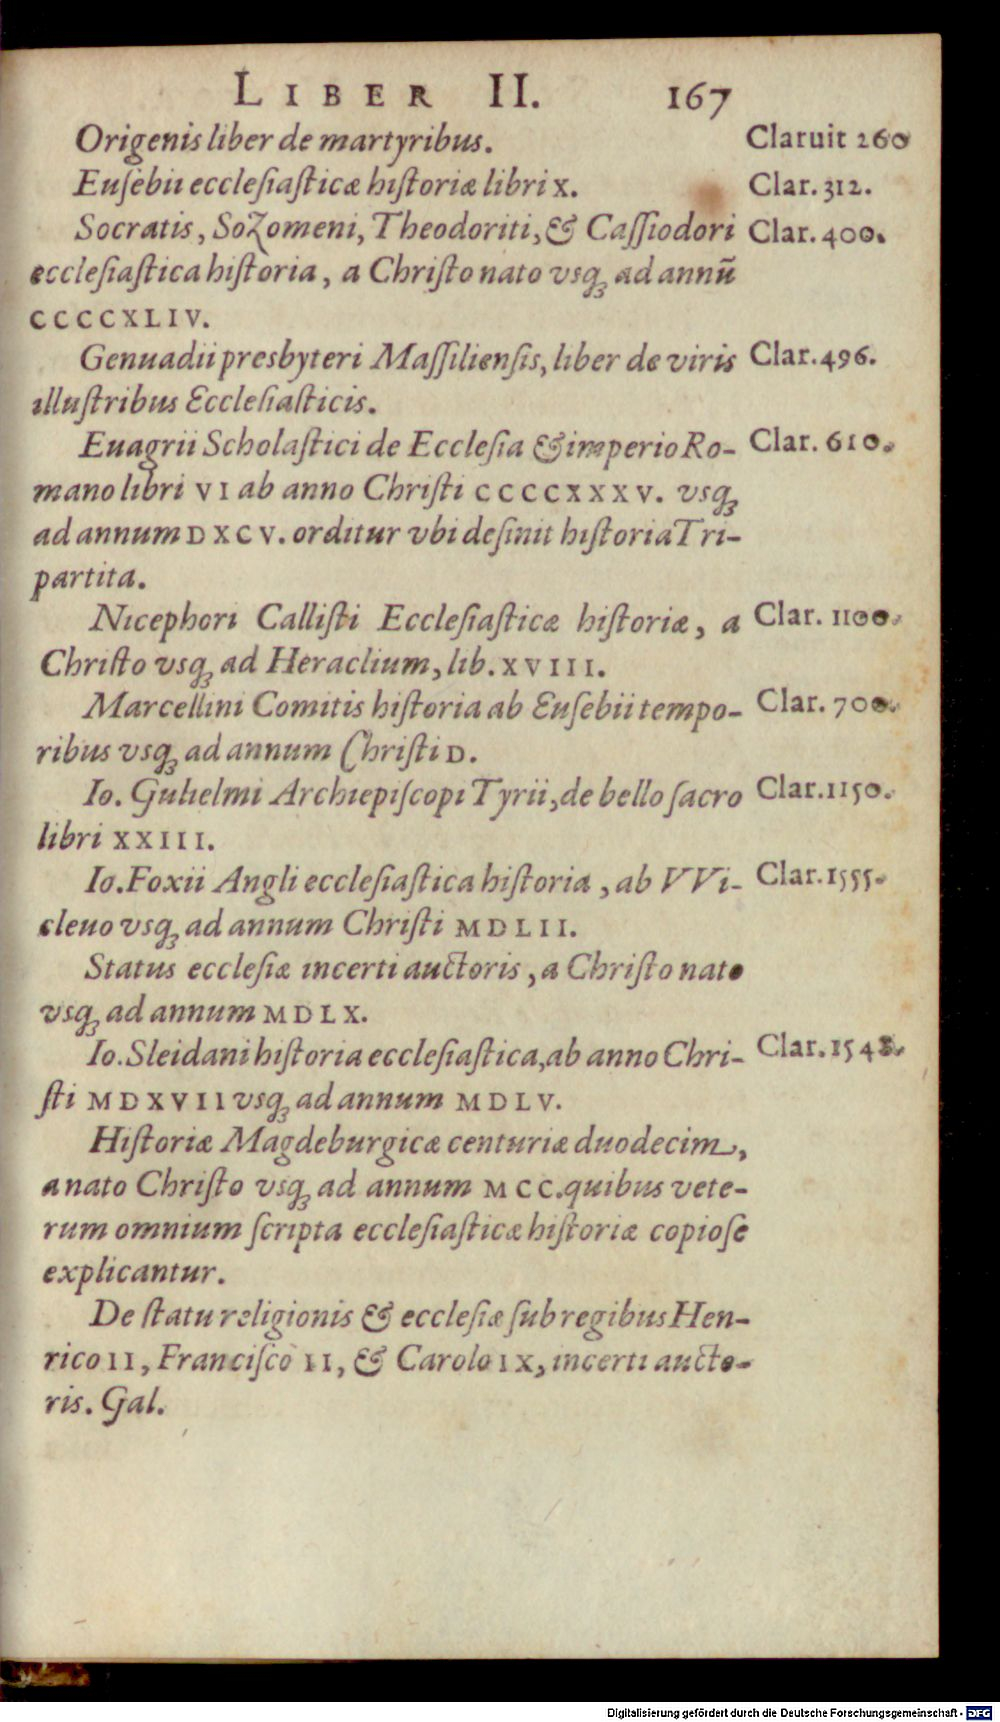 LIBER II. 167
Origenis liber de martyribus. Claruit 260
Euſebii eccleſiaſticæ hiſtoriæ libri X. Clar. 312.
Socratis, Sozomeni, Theodoriti, & Caſſiodori Clar. 400.
eccleſiaſtica hiſtoria, a Chriſto nato vsq́ꝫ ad annū
CCCCXLIV.
Genuadii presbyteri Maſſilienſis, liber de viris Clar. 496.
illuſtribus Eccleſiaſticis.
Euagrii Scholaſtici de Eccleſia & imperio Ro- Clar. 610.
mano libri VI ab anno Chriſti CCCCXXXV. vsqꝫ
ad annum DXCV. orditur vbi deſinit hiſtoria Tri-
partita.
Nicephori Calliſti Eccleſiaſticæ hiſtoriæ, a Clar. 1100.
Chriſto vsqꝫ ad Heraclium, lib. XVIII.
Marcellini Comitis hiſtoria ab Euſebii tempo- Clar. 700.
ribus vsqꝫ ad annum Chriſti D.
Io. Gulielmi Archiepiſcopi Tyrii, de bello ſacro Clar. 1150.
libri XXIII.
Io. Foxii Angli eccleſiaſtica hiſtoria, ab VVi- Clar. 1555.
cleuo vsqꝫ ad annum Chriſti MDLII.
Status eccleſiæ incerti auctoris, a Chriſto nato
vsqꝫ ad annum MDLX.
Io. Sleidani hiſtoria eccleſiaſtica, ab anno Chri- Clar. 1548.
ſti MDXVII vsqꝫ ad annum MDLV.
Hiſtoriæ Magdeburgicæ centuriæ duodecim,
a nato Chriſto vsqꝫ ad annum MCC. quibus vete-
rum omnium ſcripta eccleſiaſticæ hiſtoriæ copioſe
explicantur.
De ſtatu religionis & eccleſiæ ſub regibus Hen-
rico II, Franciſco II, & Carolo IX, incerti aucto-
ris. Gal.
Digitalisierung gefördert durch die Deutsche Forschungsgemeinschaft - DFG